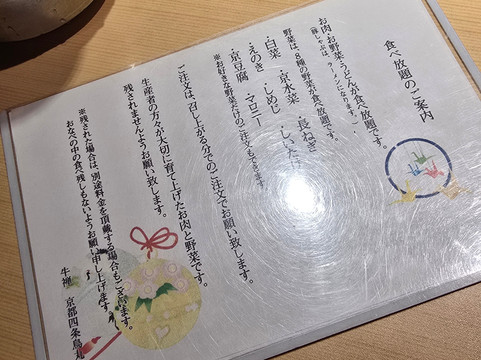 食べ放題のご案内
お肉・お野菜・うどんが食べ放題です。
（豚しゃぶは、ラーメンになります。）
野菜は、8種の野菜が食べ放題です。
・白菜 ・京水菜 ・長ねぎ
・えのき ・しめじ ・しいたけ
・京豆腐 ・マロニー
※お好きな野菜だけのご注文もできます
ご注文は、召し上がる分でのご注文でお願い致します。
生産者の方々が大切に育て上げたお肉と野菜です。
残されませんようお願い致します。
※残された場合は、別途料金を頂戴する場合もございます。
おなべの中の食べ残しもないようお願い申し上げます
牛禅 京都四条烏丸